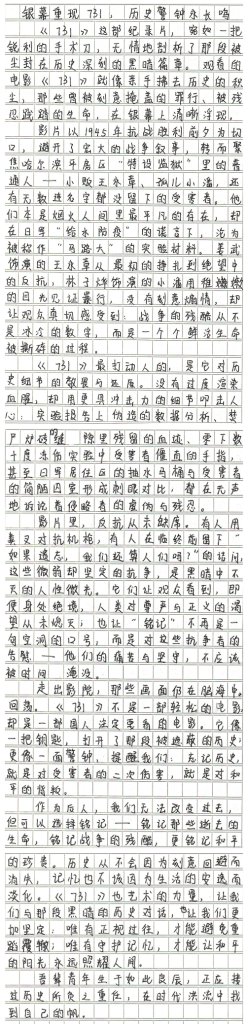 银幕重现731，历史警钟永长鸣
《731》这部纪录片，宛如一把
锐利的手术刀，无情地剖析了那段被
尘封在历史深刻的黑暗篇章。观看的
电影《731》就像亲手拂去历史的积
尘，那些曾被刻意掩盖的罪行、被残
忍践踏的生命，在银幕上清晰浮现。
影片以1945年抗战胜利前夕为切
口，避开了宏大的战争叙事，转而聚
焦哈尔滨平房区“特设监狱”里的普
通人——小贩王永章、孤儿小潘，还
有无数连名字都没留下的受害者。他
们本是烟火人间里最平凡的存在，却
在日军“给水防疫”的谎言下，沦为
被称作“马路大”的实验材料。姜武
饰演的王永章从最初的挣扎到绝望中
的反抗，林子烨饰演的小潘用稚嫩
的目光见证暴行，没有刻意煽情，却
让观众真切感受到：战争的残酷从不
是冰冷的数字，而是一个个鲜活生命
被撕碎的过程。
《731》最打动人的，是它对历
史细节的敬畏与还原。没有过度渲染
血腥，却用更具冲击力的细节叩击人
心：实验报告上伪造的数据分析、焚
尸炉
隙里残留的血迹、零下数
十度冻伤实验中受害者僵直的手指，
甚至日军居住区的抽水马桶与受害者
的简陋囚室形成刺眼对比，都在无声
地诉说着侵略者的虚伪与残忍。
影片里，反抗从未缺席。有人用
鼻叉对抗机枪，有人在临终前留下“
如果遗忘，我们还算人们吗？”的诘问，
这些微弱却坚定的抗争，是黑暗中不
灭的人性微光。它们让观众看到，即
便身处绝境，人类对尊严与正义的渴
望从未熄灭；也让“铭记”不再是一
句空洞的口号，而是对这些抗争者的
告慰——他们的痛苦与坚守，不应该
被时间淹没。
走出影院，那些画面仍在脑海中
回荡。《731》不是一部轻松的电影，
却是一部国人决定要看的电影。它像
一把钥匙，打开了那段被遮蔽的历史；
更像一面警钟，提醒我们：忘记历史，
就是对受害者的二次伤害，就是对和
平的背叛。
作为后人，我们无法改变过去，
但可以选择铭记——铭记那些逝去的
生命，铭记战争的残酷，更铭记和平
的珍贵。历史从不会因为刻意回避而
消失，记忆也不该因为生活的安逸而
淡化。《731》也艺术的力量，让我
们与那段黑暗的历史对话，也让我们更
加坚定：唯有正视过往，才能避免重
蹈覆辙；唯有守护记忆，才能让和平
的阳光永远照耀人间。
吾辈青年生于如此良辰，正在接
过历史所负之重任，在时代洪流中找
到自己的帆。